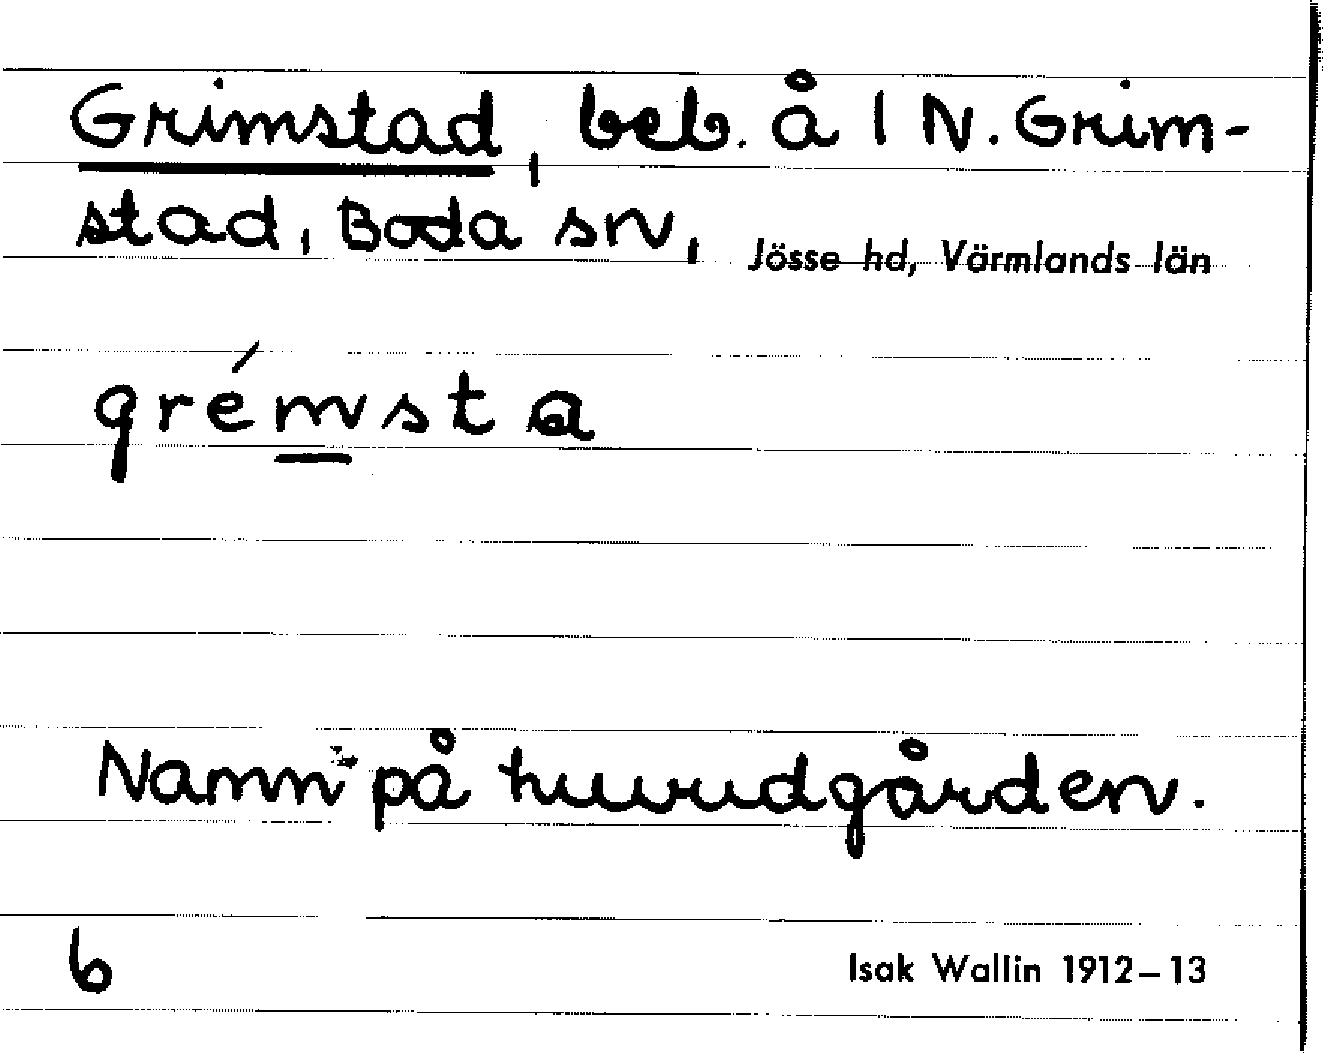 Grimstad, beb. å 1 N. Grim-
stad, Boda sn, Jösse hd, Värmlands län
grémsta
Namn på huvudgården.
6
Isak Wallin 1912–13